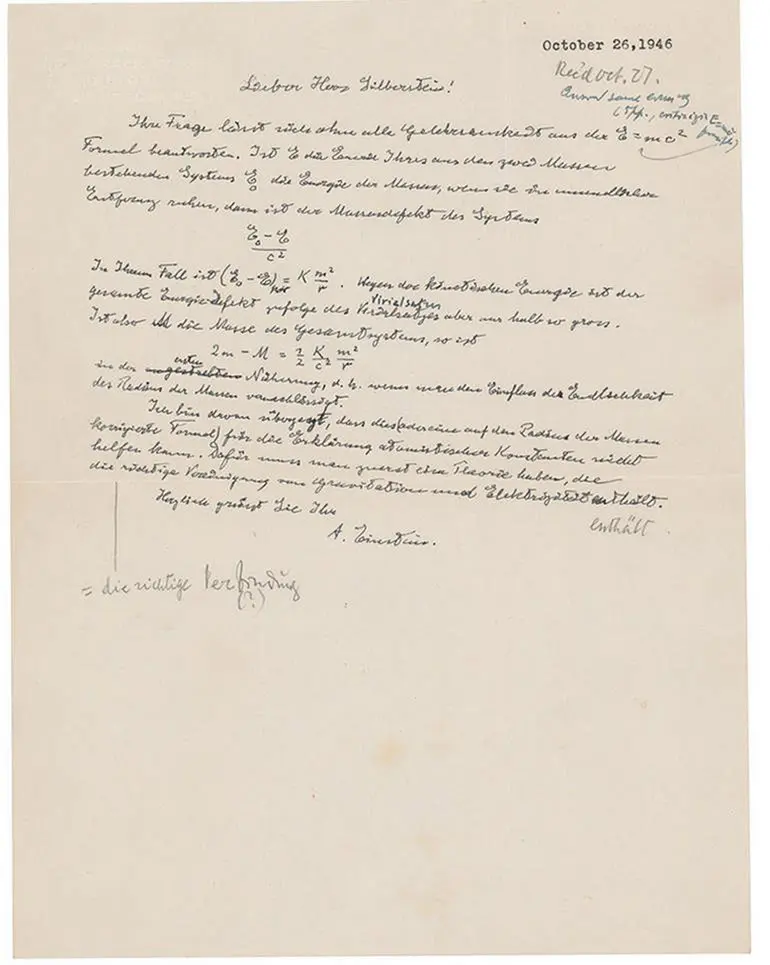 October 26, 1946
Rec'd Oct. 27.
Answ'd same evening
(5 pp., E=mc²
Lieber Herr Silberstein!
Ihre Frage lässt sich ohne alle Gelehrsamkeit aus der E = mc²
Formel beantworten. Ist E die Energie Ihres aus den zwei Massen
bestehenden Systems E₀ die Energie der Massen, wenn sie in unendlicher
Entfernung ruhen, dann ist der Massendefekt des Systems
E₀ − E
c²
In Ihrem Fall ist (E₀ − E) = K m²/r. Wegen der kinetischen Energie ist der
Virialsatzes
gesamte Energie-Defekt zufolge des Virialsatzes aber nur halb so gross.
Ist also M die Masse des Gesamtsystems, so ist
2m − M = 1/2 K/c² m²/r
ersten
in der Näherung, d.h. wenn man den Einfluss der Endlichkeit
des Radius der Massen vernachlässigt.
Ich bin davon überzeugt, dass dies (oder eine auf den Radius der Massen
korrigierte Formel) für die Erklärung atomistischer Konstanten nicht
helfen kann. Dafür muss man zuerst eine Theorie haben, die
die richtige Vereinigung von Gravitation und Elektrizität enthält.
enthält
Herzlich grüsst Sie Ihr
A. Einstein.
= die richtige Verbindung
(?)